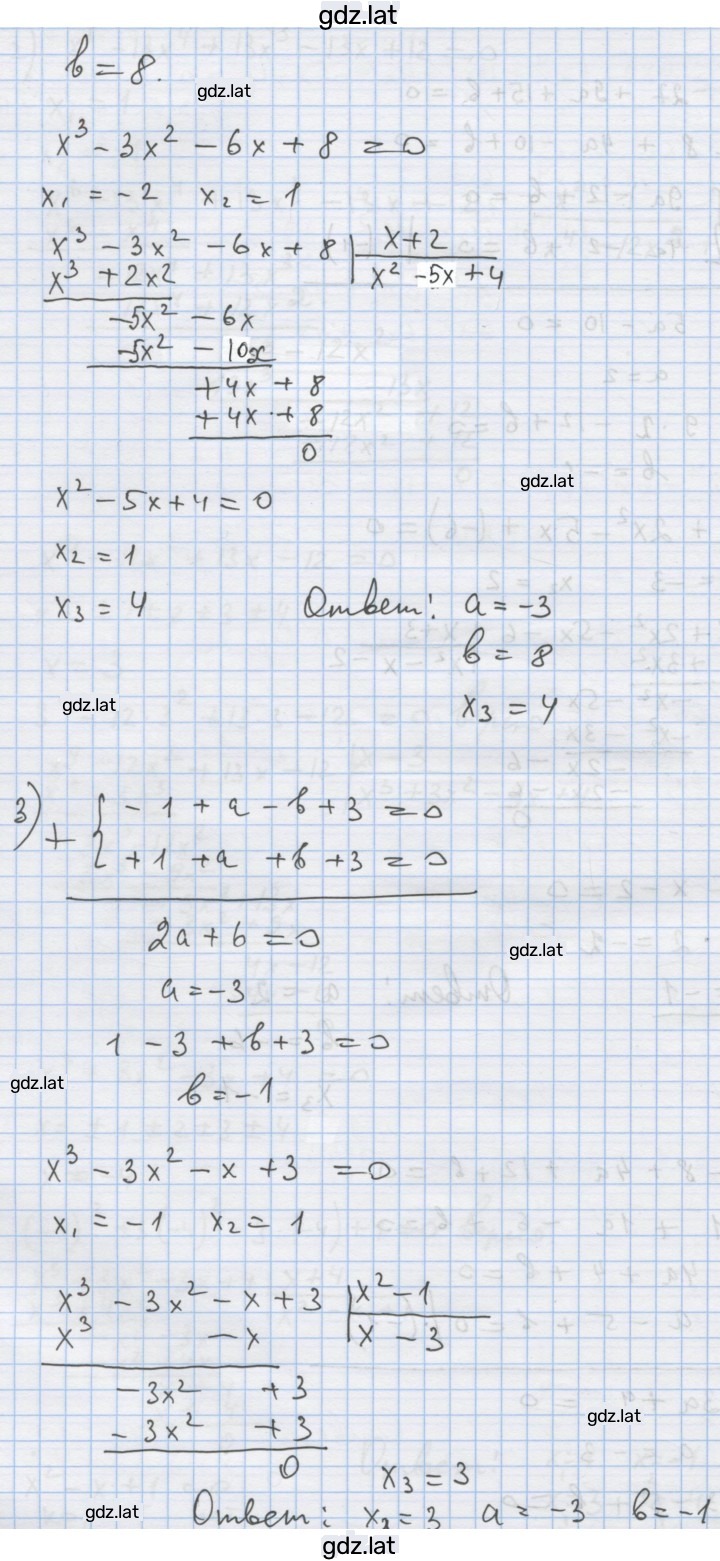 gdz.lat
b = 8.
gdz.lat
x³ - 3x² - 6x + 8 = 0
x₁ = -2 x₂ = 1
x³ - 3x² - 6x + 8 | x + 2
x³ + 2x² | x² - 5x + 4
-5x² - 6x
-5x² - 10x
+ 4x + 8
+ 4x + 8
0
gdz.lat
x² - 5x + 4 = 0
x₂ = 1
x₃ = 4 Ответ: a = -3
b = 8
gdz.lat
x₃ = 4
3) + { - 1 + a - b + 3 = 0
+ 1 + a + b + 3 = 0
2a + 6 = 0
gdz.lat
a = -3
1 - 3 + b + 3 = 0
gdz.lat
b = -1
x³ - 3x² - x + 3 = 0
x₁ = -1 x₂ = 1
x³ - 3x² - x + 3 | x² - 1
x³ - x | x - 3
-3x² + 3
gdz.lat
- 3x² + 3
0
x₃ = 3
gdz.lat
Ответ: x₃ = 3 a = -3 b = -1
gdz.lat